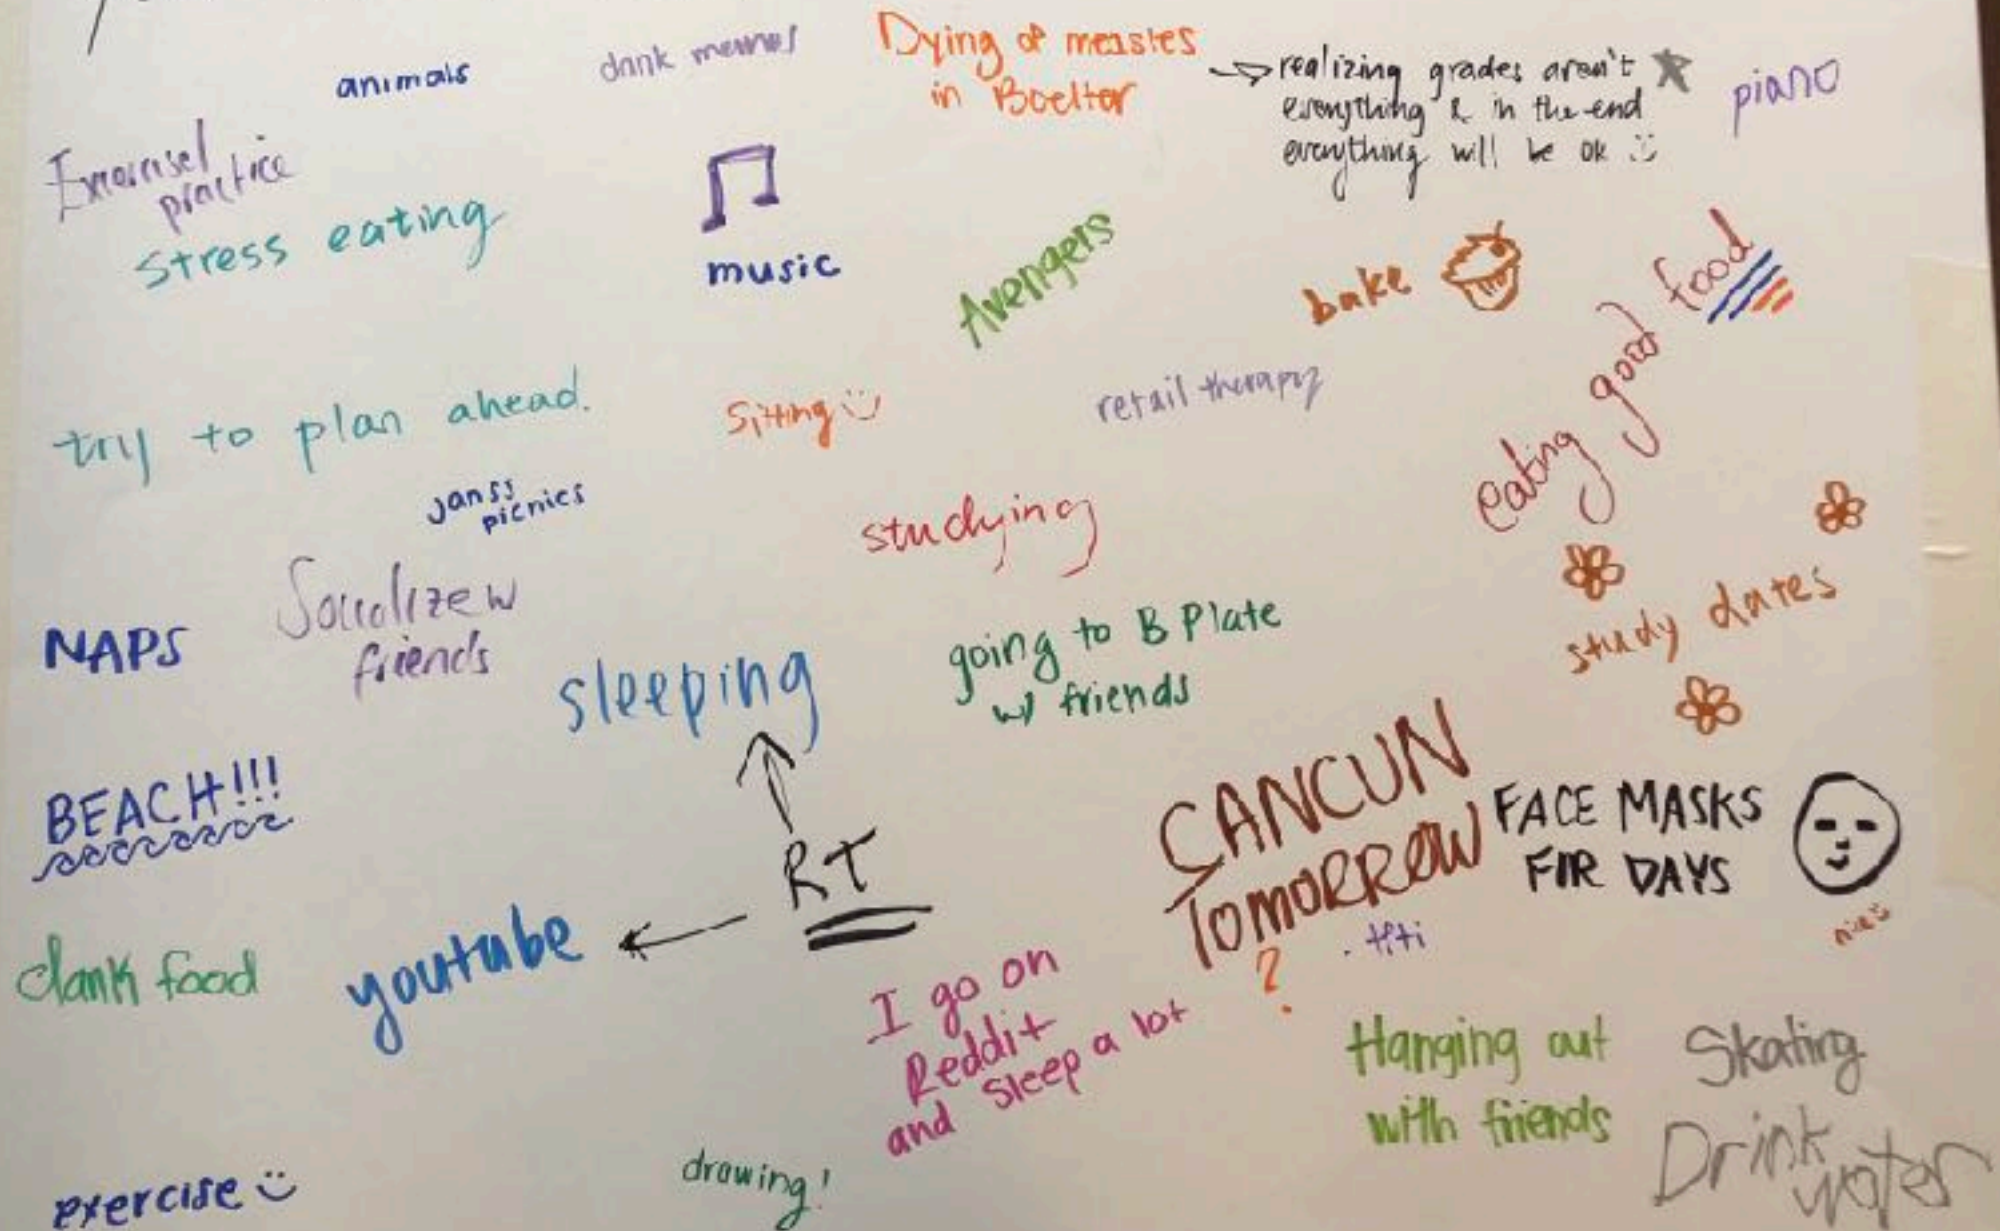 animals
dank memes
Dying of measles
in Boelter
realizing grades aren't
everything & in the end
everything will be ok
piano
practice
stress eating
music
Avengers
bake
eating good food
try to plan ahead.
Sitting
retail therapy
janss
picnics
studying
NAPS
Socialize w
friends
sleeping
going to B Plate
w/ friends
study dates
BEACH!!!
RT
CANCUN
TOMORROW
?
FACE MASKS
FOR DAYS
nice
dank food
youtube
I go on
Reddit
and sleep a lot
Hanging out
with friends
Skating
Drink
water
exercise
drawing!